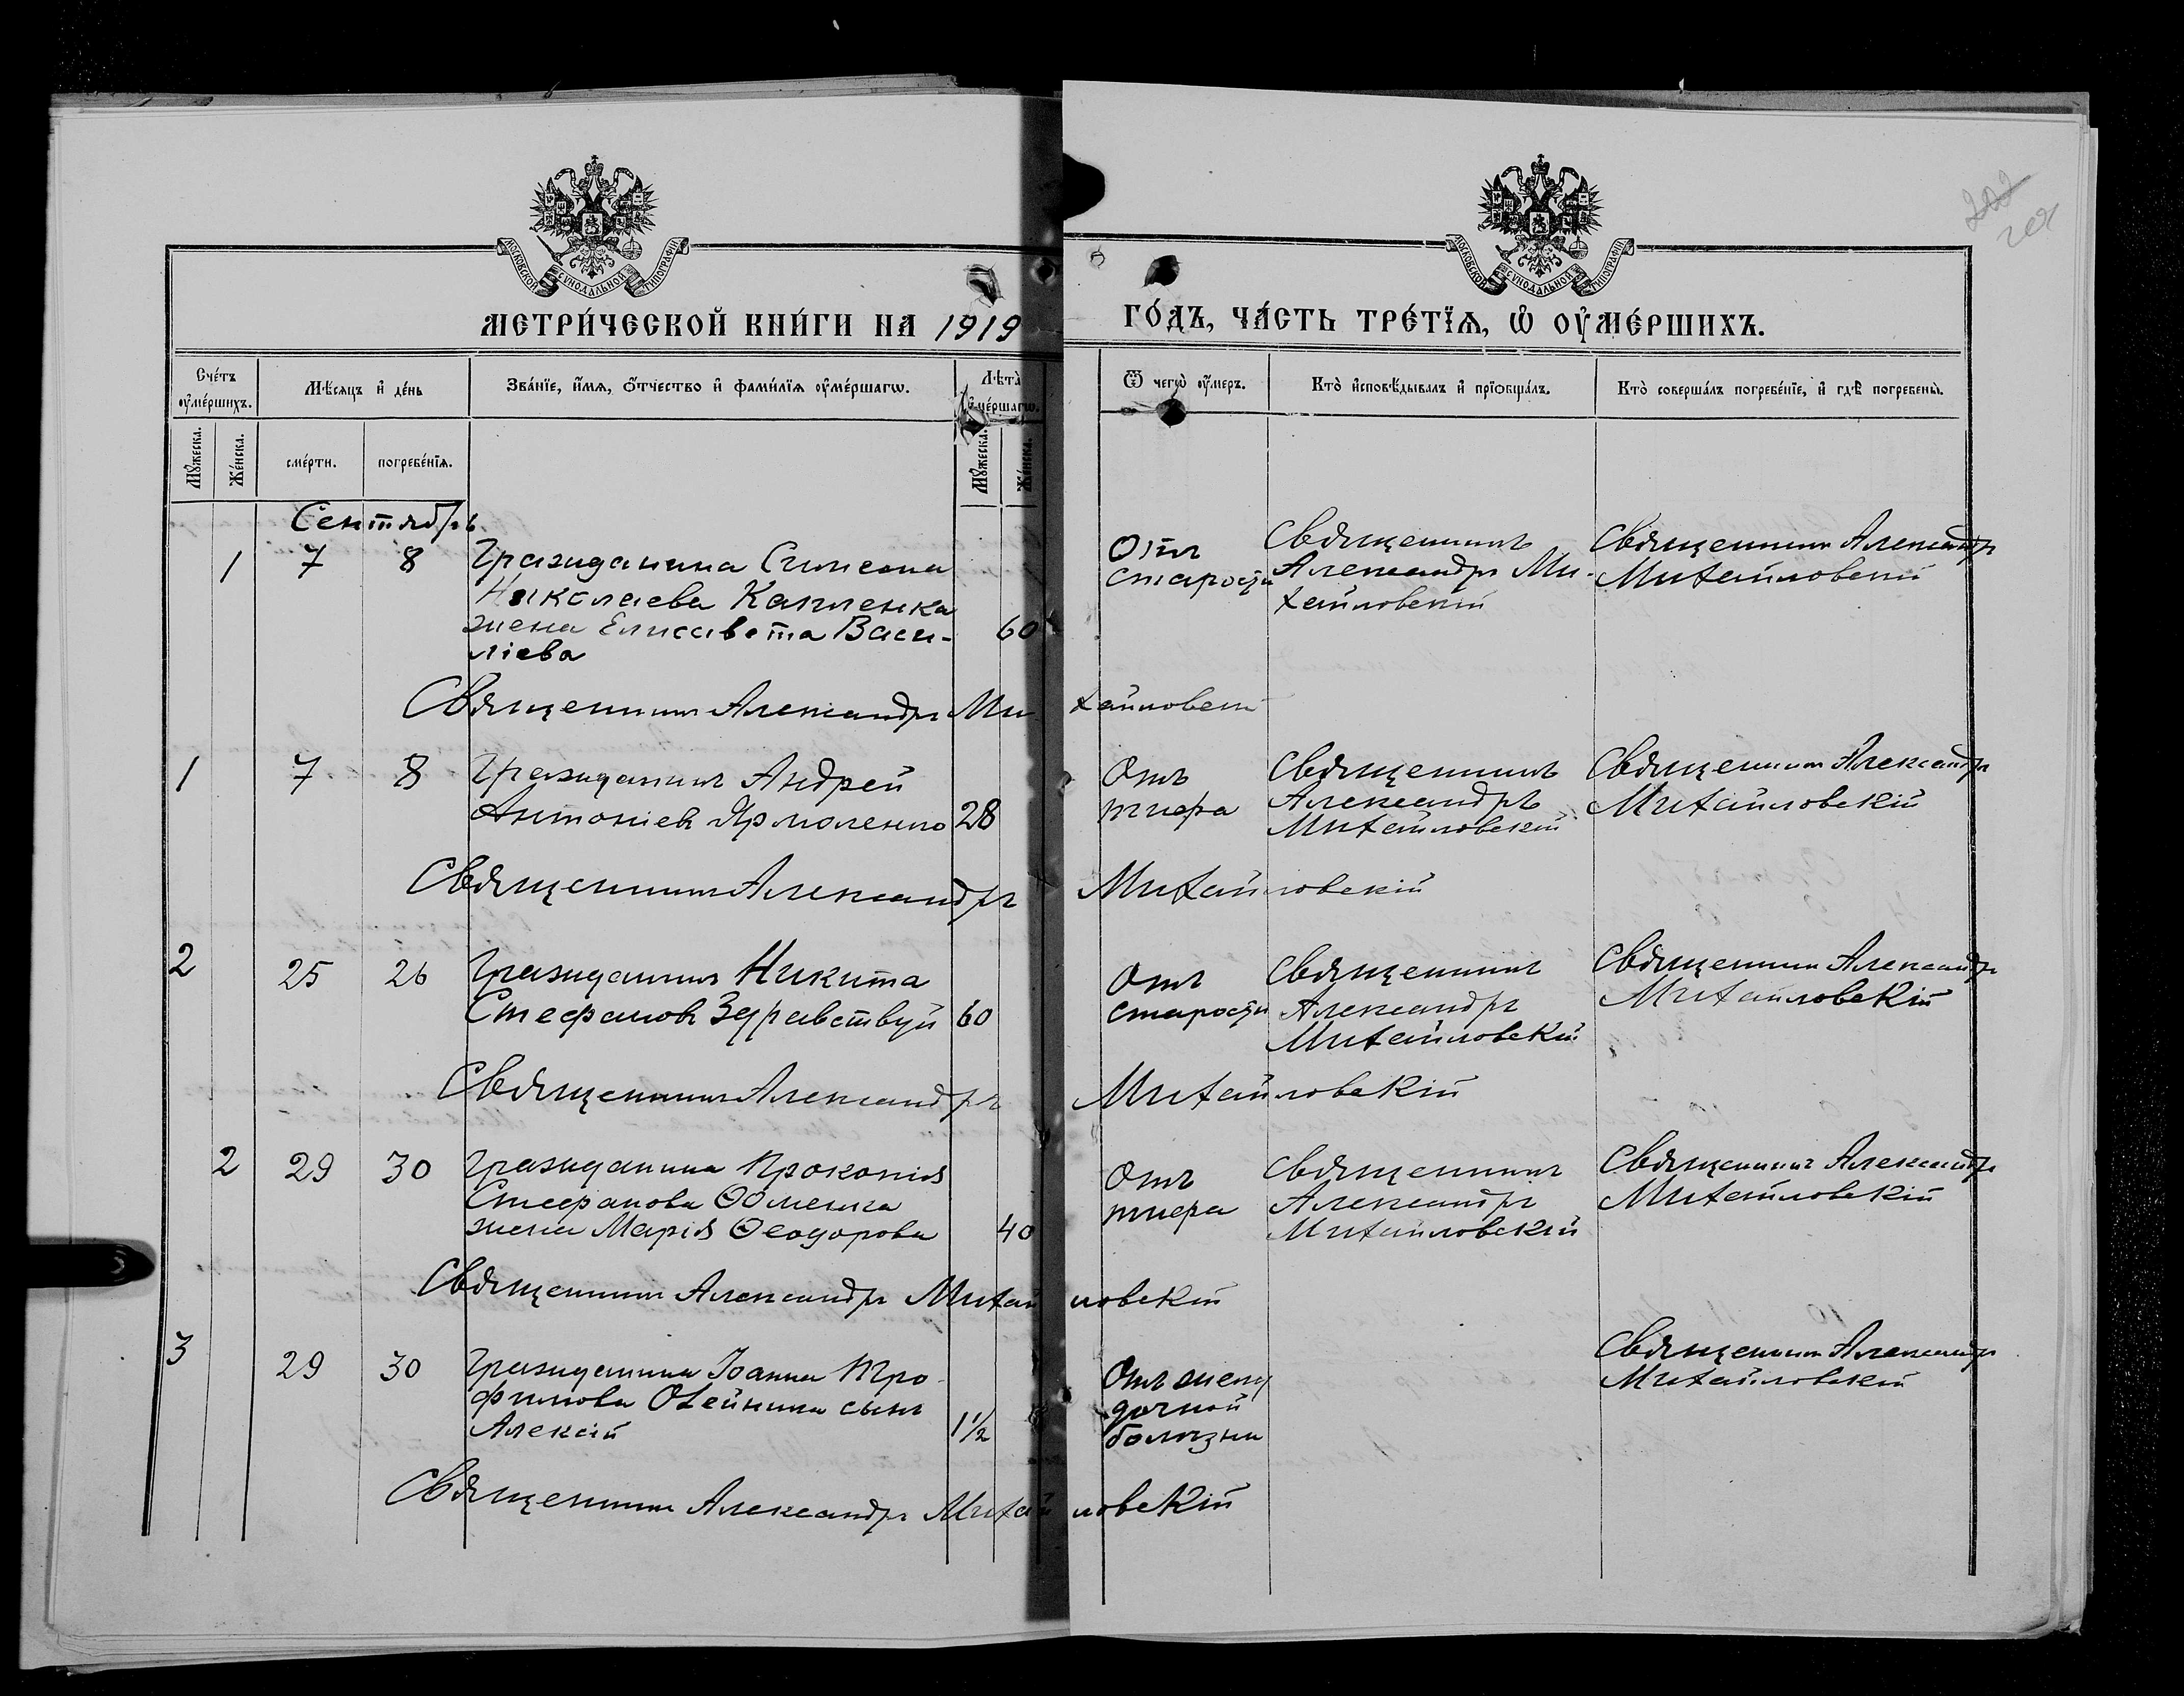 МОСКОВСКОЙ СУНОДАЛЬНОЙ ТИПОГРАФІИ
МОСКОВСКОЙ СУНОДАЛЬНОЙ ТИПОГРАФІИ
МЕТРИ́ЧЕСКОЙ КНИ́ГИ НА 1919
ГО́ДЪ, ЧА́СТЬ ТРЕ́ТЇѦ, Ѡ ОУ҆МЕ́РШИХЪ.
Сче́тъ
оу҆ме́ршихъ.
Мѣ́сѧцъ и҆ де́нь
Зва́нїе, и҆́мѧ, о҆́тчество и҆ фами́лїѧ оу҆ме́ршагѡ.
Лѣ́та
оу҆ме́ршагѡ.
Ѿ чегѡ̀ оу҆́меръ.
Кто̀ и҆сповѣ́дывалъ и҆ прїѡбща́лъ.
Кто̀ соверша́лъ погребе́нїе, и҆ гдѣ̀ погребены̀.
Мꙋ́жеска.
Же́нска.
сме́рти.
погребе́нїѧ.
Мꙋ́жеска.
Же́нска.
Сентябрь
1 7 8 Гражданина Симеона
Николаева Капленка
жена Елисавета Васи-
ліева
60
Отъ
старости
Священникъ
Александръ Ми-
хайловскій
Священникъ Александръ
Михайловскій
Священникъ Александръ Михайловскій
1 7 8 Гражданинъ Андрей
Антоніевъ Ярмоленко 28
Отъ
тифа
Священникъ
Александръ
Михайловскій
Священникъ Александръ
Михайловскій
Священникъ Александръ Михайловскій
2 25 26 Гражданинъ Никита
Стефановъ Здравствуй 60
Отъ
старости
Священникъ
Александръ
Михайловскій
Священникъ Александръ
Михайловскій
Священникъ Александръ Михайловскій
2 29 30 Гражданина Прокопія
Стефанова
жена Марія Ѳеодорова 40
Отъ
тифа
Священникъ
Александръ
Михайловскій
Священникъ Александръ
Михайловскій
Священникъ Александръ Михайловскій
3 29 30 Гражданина Іоанна Тро-
фимова сынъ
Алексій 1½
Отъ желу
дочной
болѣзни
Священникъ Александръ
Михайловскій
Священникъ Александръ Михайловскій